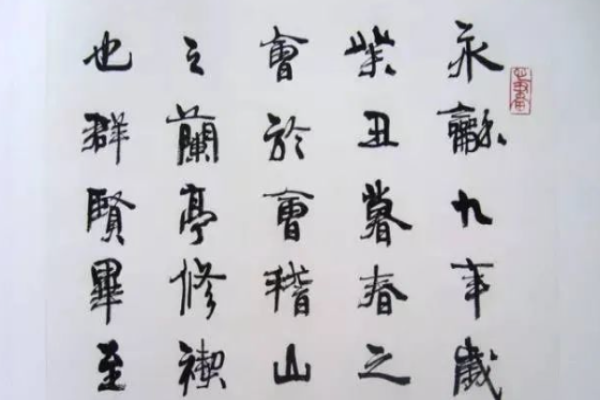 永龢九年歲
癸丑暮春之
會於會稽山
之蘭亭修禊
也群賢畢至